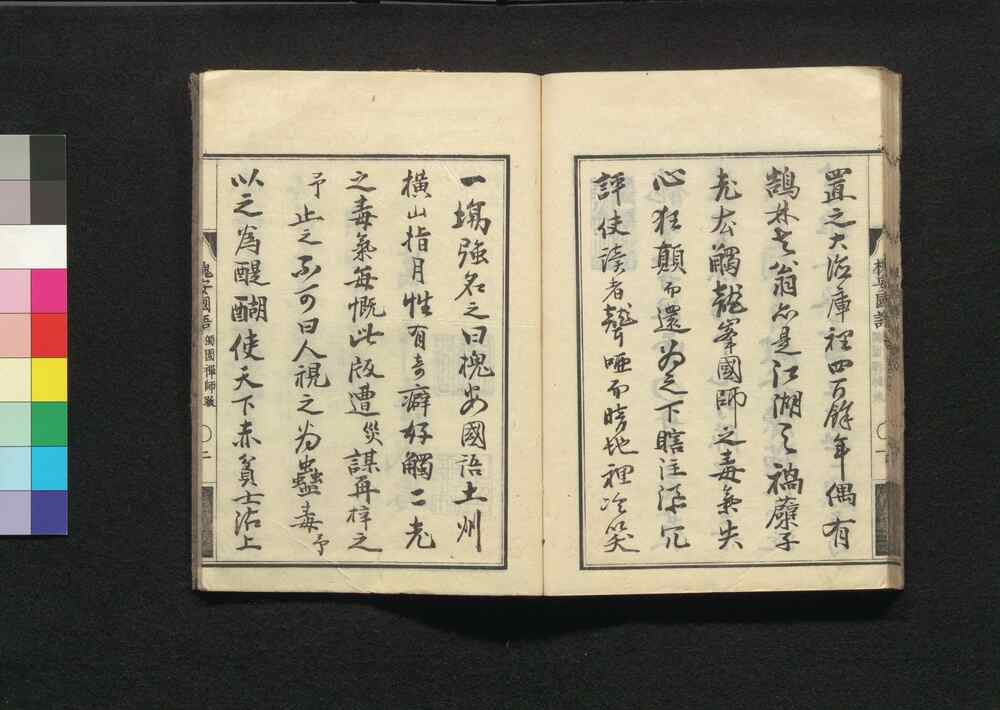 置之大法庫裡四百餘年偶有
鵠林老翁亦是江湖之禍蘖子
老去觸龍峯國師之毒氣失
心狂顛而還為之下瞎注添冗
評使讀者聾啞而暗地裡冷笑
一塲強名之曰槐安國語土州
橫山指月性有奇癖好觸二老
之毒氣每慨此版遭災謀再梓之
予止之不可曰人視之為蠱毒予
以之為醍醐使天下赤貧士沾上
槐安國語 獨園禪師跋 二
槐安國語 一